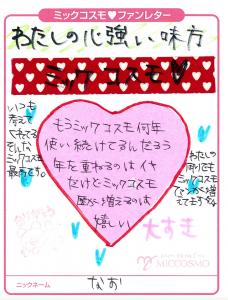 ミックコスモ♥ファンレター
わたしの心強い味方
ミックコスモ♥
いつも
考えて
くれてる
そんな
ミックコスモ
最高です。
もうミックコスモ何年
使い続けてるんだろう
年を重ねるのはイヤ
だけどミックコスモ
歴が増えるのは
嬉しい
わたしの
周りでも
ミックコスモ
ファンが
増えてます
大すき
ありがとう
MICCOSMO
ニックネーム
なお